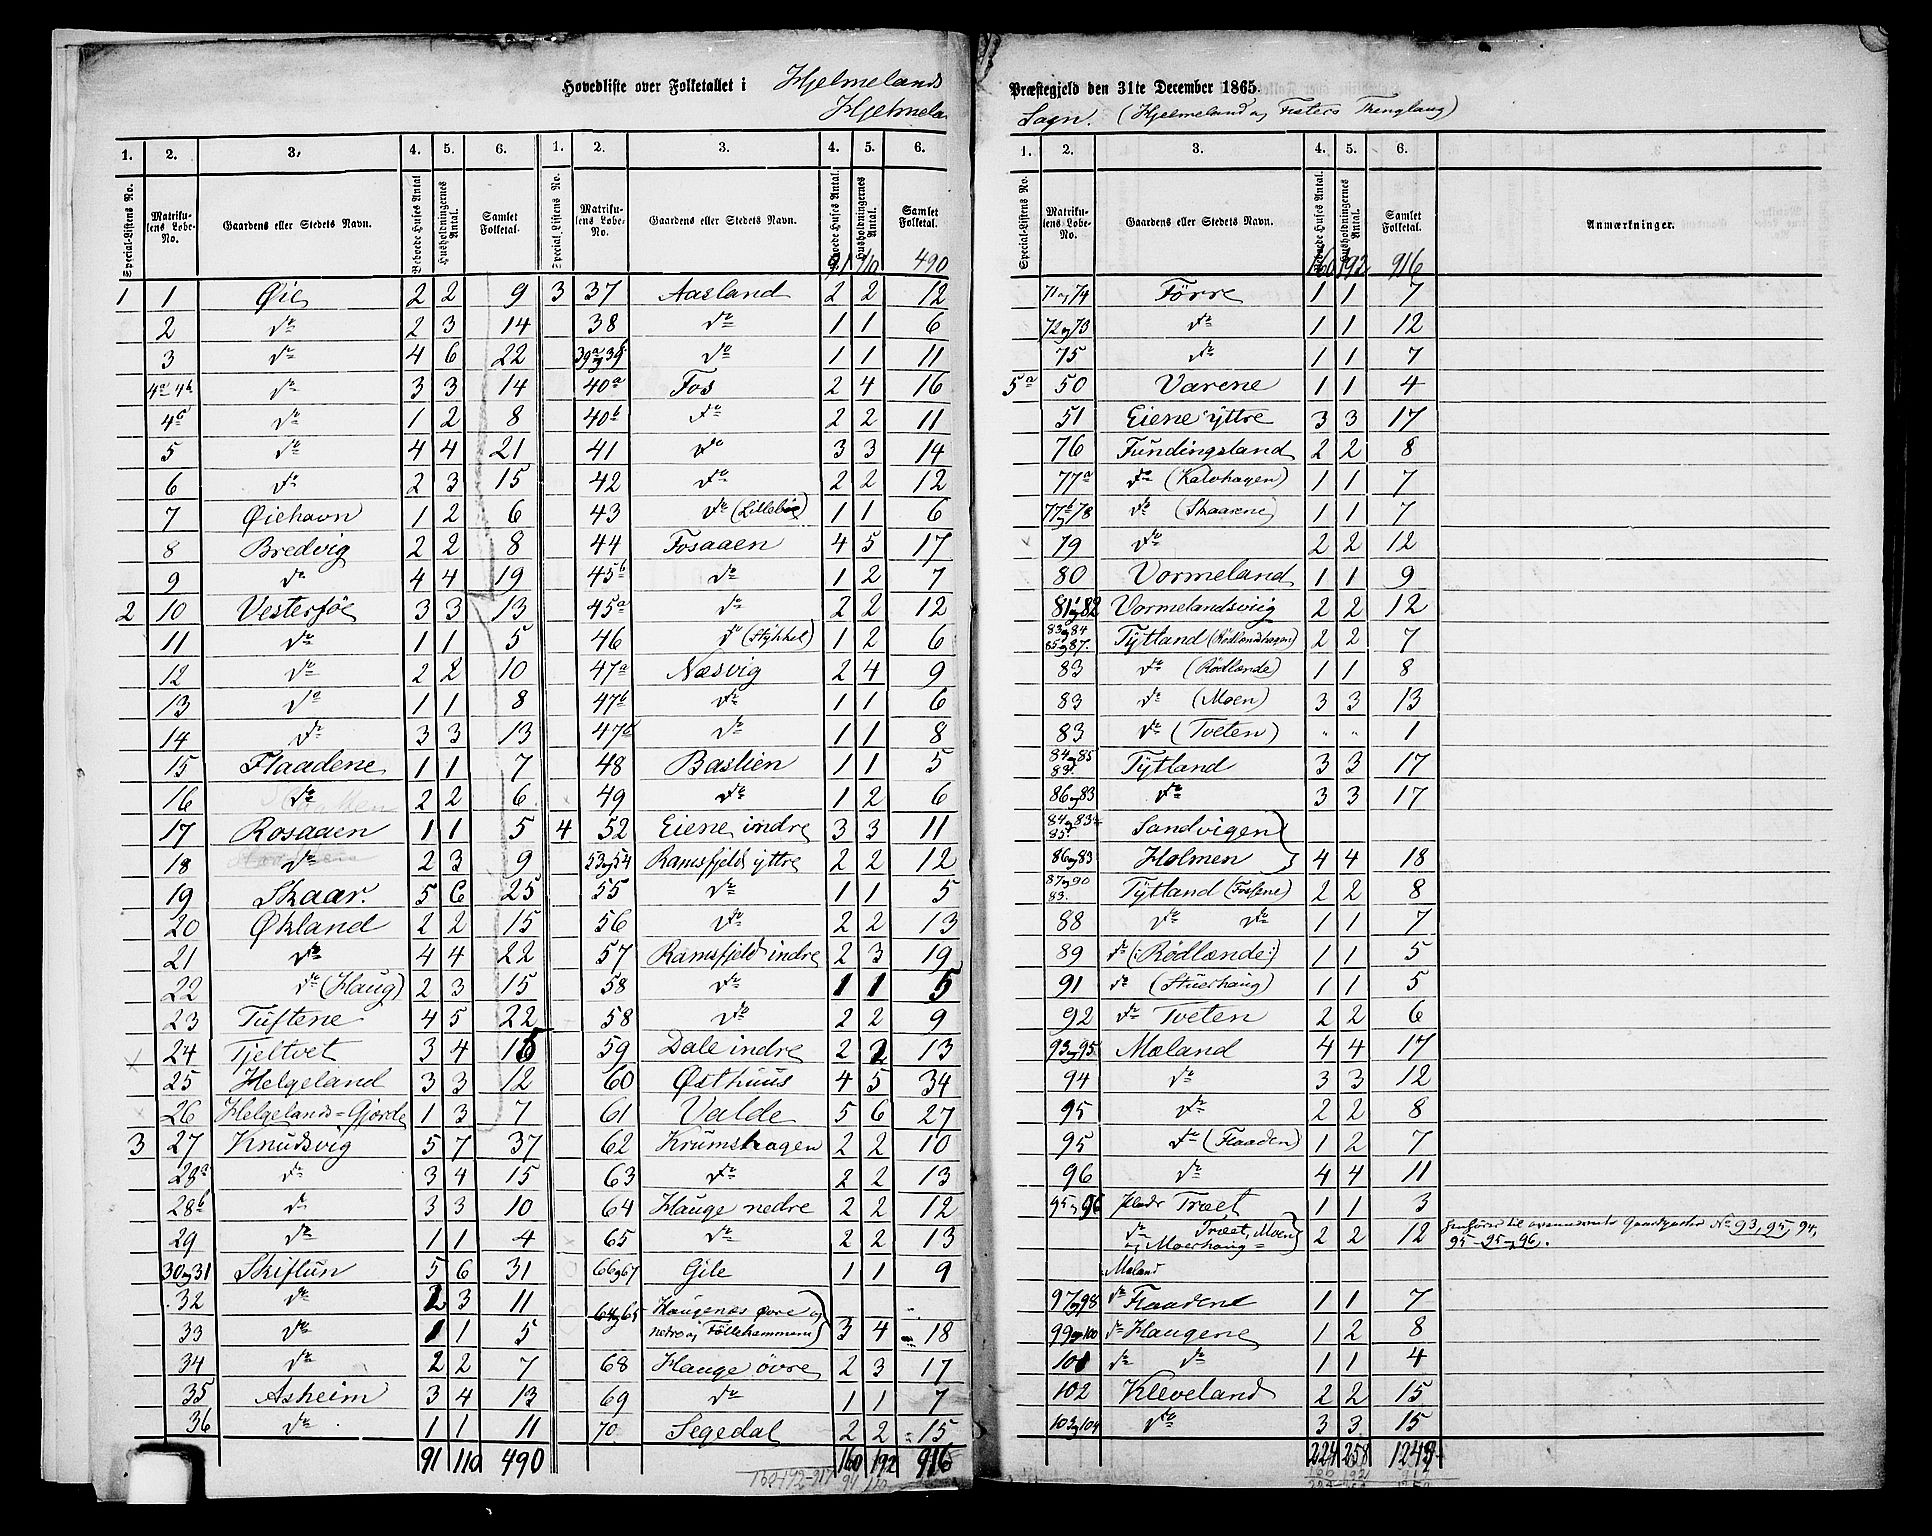 Hovedliste over Folketallet i Hjelmelands
Hjelmela
1. 2. 3. 4. 5. 6. 1. 2. 3. 4. 5. 6.
Special-Listens No. Matrikulens Løbe-No. Gaardens eller Stedets Navn. Beboede Huses Antal Husholdningernes Antal. Samlet Folketal. Special-Listens No. Matrikulens Løbe-No. Gaardens eller Stedets Navn. Beboede Huses Antal. Husholdningernes Antal. Samlet Folketal.
91 110 490
1 1 Øie 2 2 9 3 37 Aasland 2 2 12
2 do 2 3 14 38 do 1 1 6
3 do 4 6 22 39a og 39b do 1 1 11
4a 4b do 3 3 14 40a Fos 2 4 16
4c do 1 2 8 40b do 2 2 11
5 do 4 4 21 41 do 3 3 14
6 do 2 3 15 42 do 2 2 12
7 Øiehavn 1 2 6 43 do (Lillebøe) 1 1 6
8 Bredvig 2 2 8 44 Fosaaen 4 5 17
9 do 4 4 19 45b do 1 2 7
2 10 Vesterføe 3 3 13 45a do 2 2 12
11 do 1 1 5 46 do (Stykkel) 1 2 6
12 do 2 2 10 47a Næsvig 2 4 9
13 do 1 1 8 47b do 1 1 6
14 do 3 3 13 47c do 1 1 8
15 Flaadene 1 1 7 48 Bastien 1 1 5
16 do 2 2 6 49 do 1 2 6
17 Rosaaen 1 1 5 4 52 Eiene indre 3 3 11
18 do 2 3 9 53 og 54 Ramsfjeld yttre 2 2 12
19 Skaar. 5 6 25 55 do 1 1 5
20 Økland 2 2 15 56 do 2 2 13
21 do 4 4 22 57 Ramsfjeld indre 2 3 19
22 do (Haug) 2 3 15 58 do 1 1 5
23 Tuftene 4 5 22 58 do 2 2 9
24 Tjeltvet 3 4 15 59 Dale indre 2 2 13
25 Helgeland 3 3 12 60 Østhuus 4 5 34
26 Helgelands=Gjorde 1 3 7 61 Valde 5 6 27
3 27 Knudsvig 5 7 37 62 Krumshagen 2 2 10
28a do 3 4 15 63 do 2 2 13
28b do 3 3 10 64 Hauge nedre 2 2 12
29 do 1 1 4 65 do 2 2 13
30 og 31 Skiftun 5 6 31 66 og 67 Gile 1 1 9
32 do 2 3 11 64 og 65 Haugenæs øvre og
33 do 1 1 5 nedre ogFöllehammeren 3 4 18
34 do 2 2 7 68 Hauge øvre 2 3 17
35 Asheim 3 4 13 69 do 1 1 7
36 do 1 1 11 70 Segedal 2 2 15
91 110 490 160 192 916
Præstegjeld den 31te December 1865.
Sogn. (Hjelmeland og Fisters Thenglaug)
1. 2. 3. 4. 5. 6.
Special-Listens No. Matrikulens Løbe-No. Gaardens eller Stedets Navn. Beboede Huses Antal. Husholdningernes Antal. Samlet Folketal. Anmærkninger.
160 192 916
71 og 74 Førre 1 1 7
72 og 73 do 1 1 12
75 do 1 1 7
5a 50 Varene 1 1 4
51 Eiene yttre 3 3 17
76 Fundingsland 2 2 8
77a do (Kalvhagen) 1 1 7
77b og 78 do (Skaarene) 1 1 7
79 do 2 2 12
80 Vormeland 1 1 9
81 og 82 Vormelandsviig 2 2 12
83 og 84
85 og 87. Tytland (Rødlandhagen) 2 2 7
83 do (Rødlænde) 1 1 8
83 do (Moen) 3 3 13
83 do (Tveten) " " 1
84 og 85
83. Tytland 3 3 17
86 og 83 do 3 3 17
84 og 83
85. Sandvigen
86 og 83 Holmen 4 4 18
87 og 90
83. Tytland (Fossene) 2 2 8
88 do do 1 1 7
89 do (:Rødlænde:) 1 1 5
91 do (Stuerhaug) 1 1 5
92 do Tveten 2 2 6
93 og 95 Mæland 4 4 17
94 do 3 3 12
95 do 2 2 8
95 do (Flaaden) 1 2 7
96 do 4 4 11
95 og 96 Plads Træet 1 1 3
do Træet, Moen
og Moerhaug= 2 2 12 No 93, 95, 94,
95 - 95 og 96.
Mæland
97 og 98 do Flaadene 1 1 7
99 og 100 do Haugene 1 2 8
101 do do 1 1 4
102 Kleveland 2 2 15
103 og 104 do 3 3 15
224 258 1249